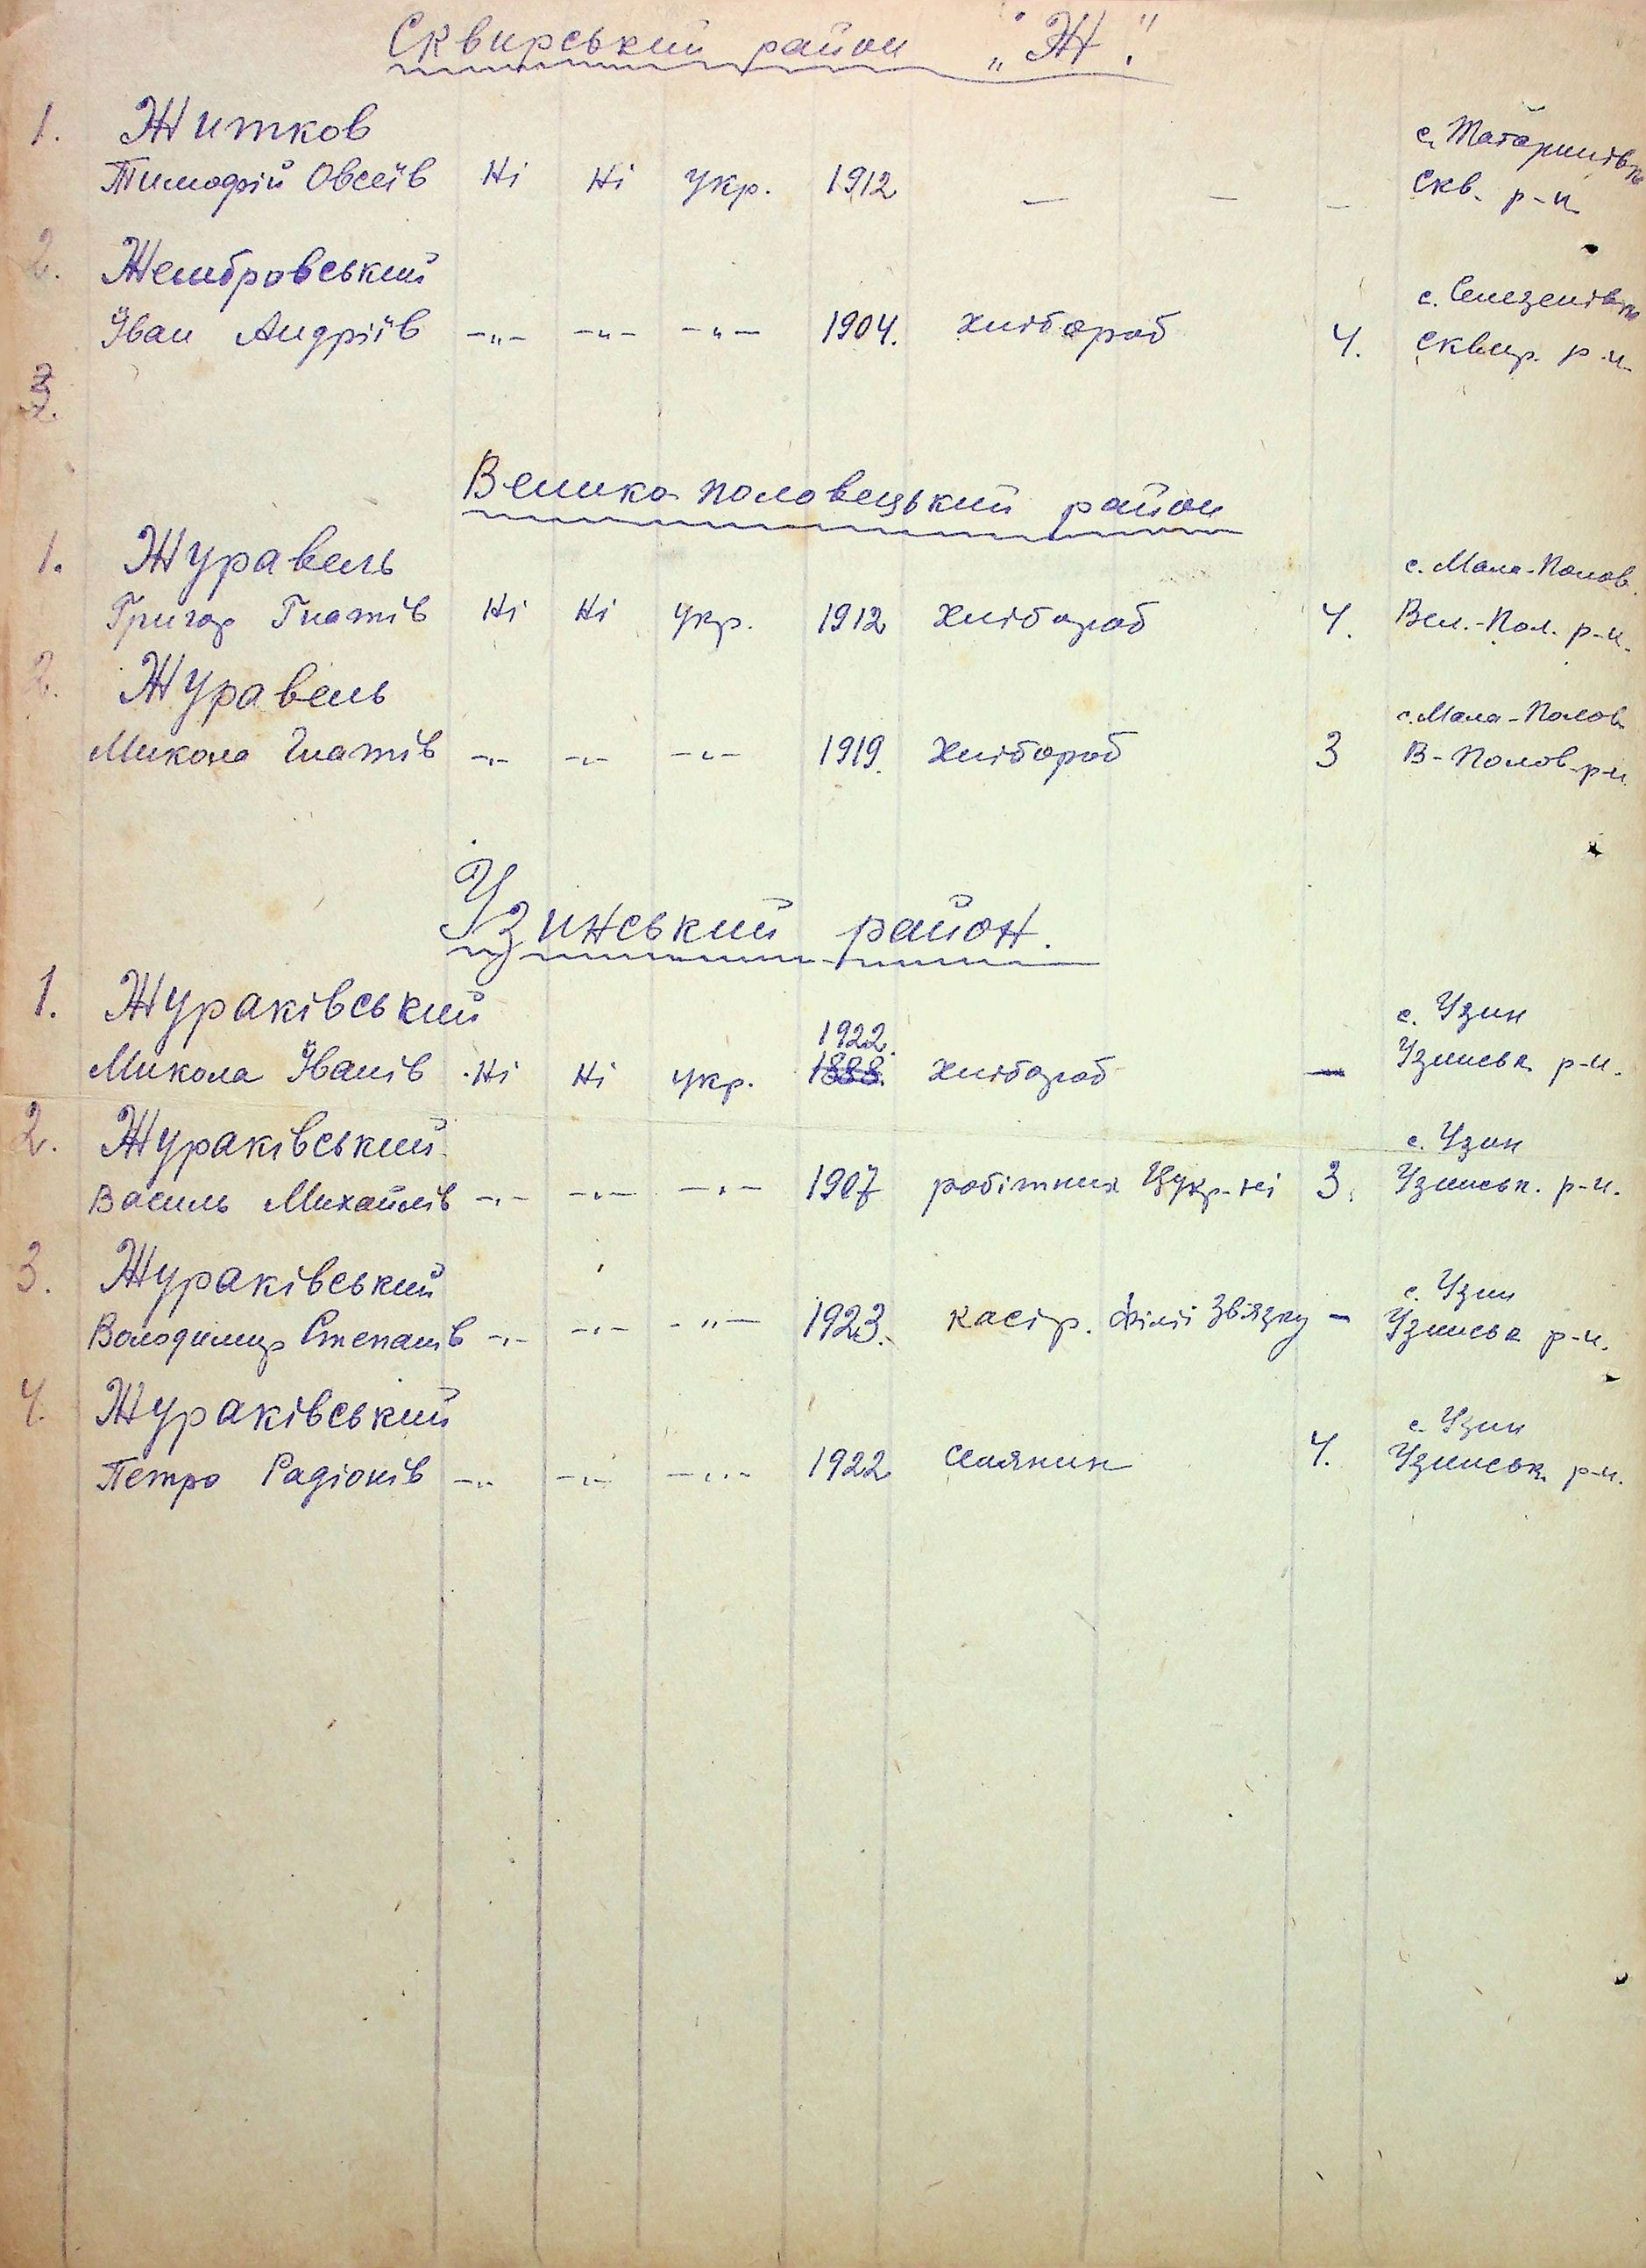 Сквирський район „Ж".
1. Житков
с. Татаринівка
Тимофій Овсеїв Ні Ні укр. 1912 — — — Скв. р-н
2. Жембровський
с. Селезенівка
Іван Андріїв —"— —"— —"— 1904. хлібороб 4. Сквир. р-н
3.
Велико-половецький район
1. Журавель
с. Мала-Полов.
Григор Гнатів Ні Ні укр. 1912 хлібороб 4. Вел.-Пол. р-н.
2. Журавель
с. Мала-Полов.
Микола Гнатів —"— —"— —"— 1919. хлібороб 3 В-Полов р-н.
Узинський район.
1. Жураківський
1922. с. Узин
Микола Іванів Ні Ні укр. 1888. хлібороб — Узинськ. р-н.
2. Жураківський
с. Узин
Василь Михайлів —"— —"— —"— 1907 робітник Цукр-ні 3. Узинськ. р-н.
3. Жураківський
с. Узин
Володимир Степанів —"— —"— —"— 1923. касір. філії Звязку — Узинськ р-н.
4. Жураківський
с. Узин
Петро Радіонів —"— —"— —"— 1922 селянин 4. Узинськ. р-н.